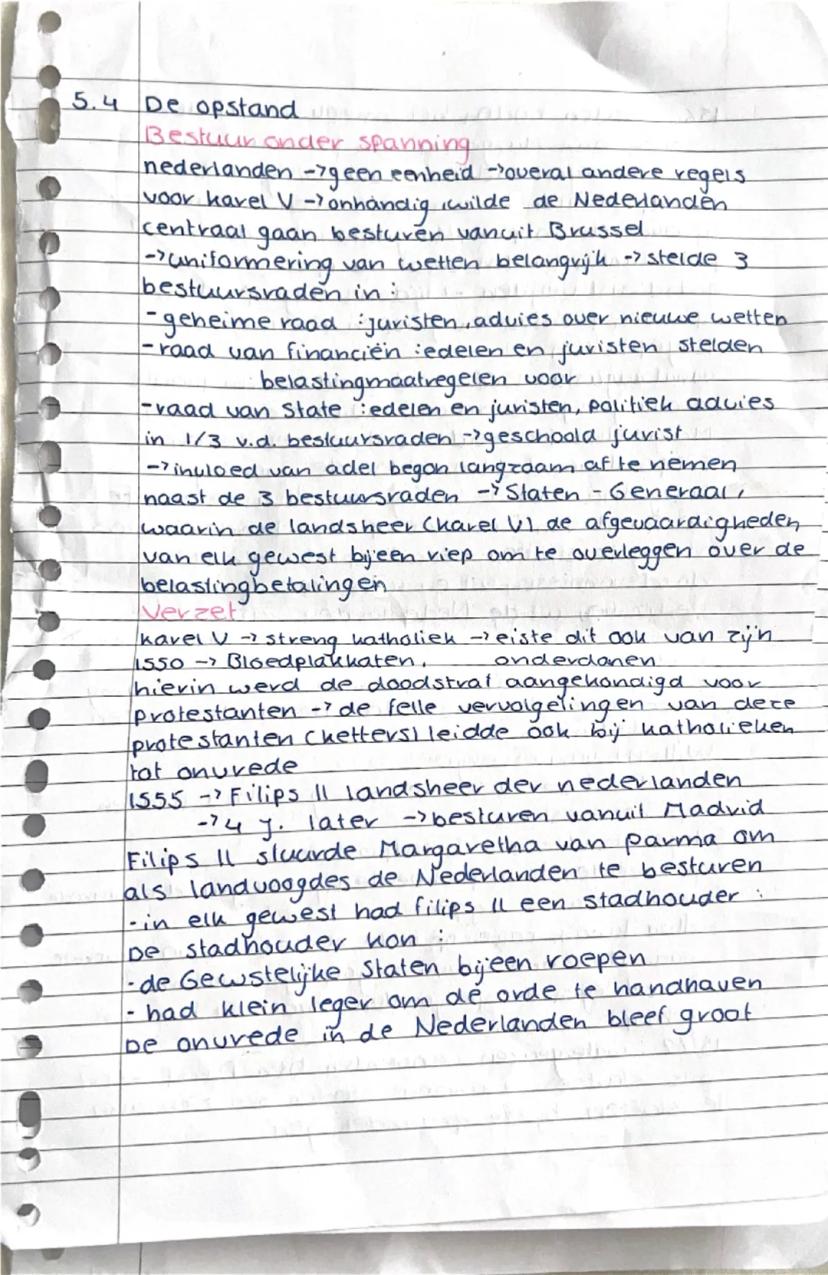 5.4 De opstand
Bestuur onder spanning
nederlanden -> geen eenheid -> overal andere regels
voor karel V -> onhandig, wilde de Nederlanden
centraal gaan besturen vanuit Brussel
-> uniformering van wetten belangrijk -> stelde 3
bestuursraden in:
- geheime raad : juristen, advies over nieuwe wetten
- raad van financiën : edelen en juristen stelden
belastingmaatregelen voor
- raad van State : edelen en juristen, politiek advies
in 1/3 v.d. bestuursraden -> geschoold jurist
-> invloed van adel begon langzaam af te nemen
naast de 3 bestuursraden -> Staten - Generaal,
waarin de landsheer (karel V) de afgevaardigheden
van elk gewest bijeen riep om te overleggen over de
belastingbetalingen
Verzet
karel V -> streng katholiek -> eiste dit ook van zijn
1550 -> Bloedplakkaten, onderdanen
hierin werd de doodstraf aangekondigd voor
protestanten -> de felle vervolgelingen van deze
protestanten (ketters) leidde ook bij katholieken
tot onvrede
1555 -> Filips II landsheer der nederlanden
-> 4 j. later -> besturen vanuit Madrid
Filips II stuurde Margaretha van parma om
als landvoogdes de Nederlanden te besturen
- in elk gewest had filips II een stadhouder :
De stadhouder kon :
- de Gewstelijke Staten bijeen roepen
- had klein leger om de orde te handhaven
De onvrede in de Nederlanden bleef groot